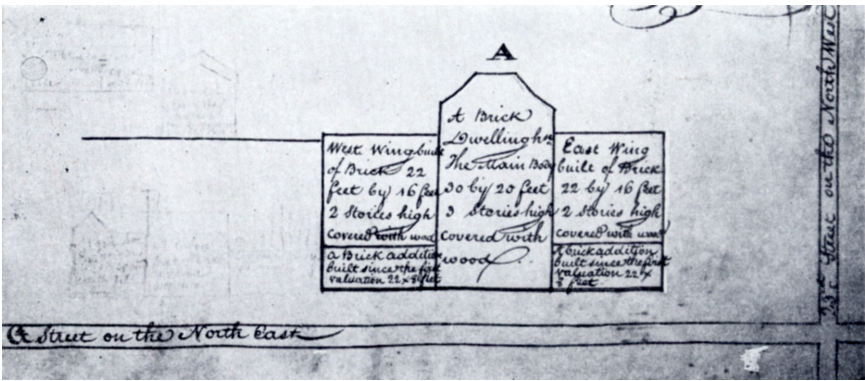 A
West Wing built
of Brick 22
feet by 16 feet
2 Stories high
Covered with wood
a Brick addition
built since the first
valuation 22 x 8 feet
A Brick
Dwelling hse
The Main Body
30 by 20 feet
3 Stories high
covered with
wood
East Wing
built of Brick
22 by 16 feet
2 Stories high
covered with wood
a brick addition
built since the first
valuation 22 x
8 feet
Street on the North East
23rd Street on the North West